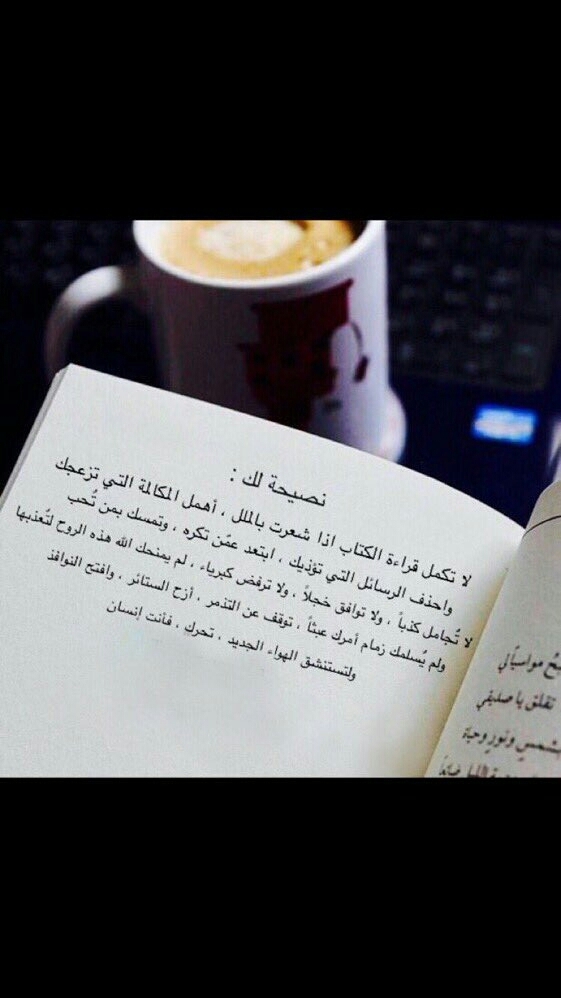 نصيحة لك :
لا تكمل قراءة الكتاب اذا شعرت بالملل ، أهمل المكالمة التي تزعجك
واحذف الرسائل التي تؤذيك ، ابتعد عمّن تكره ، وتمسك بمن تُحب
لا تُجامل كذباً ، ولا توافق خجلاً ، ولا ترفض كبرياء ، لم يمنحك الله هذه الروح لتُعذبها
ولم يُسلمك زمام أمرك عبثاً ، توقف عن التذمر ، أزح الستائر ، وافتح النوافذ
ولتستنشق الهواء الجديد ، تحرك ، فأنت إنسان
مواسياً لي
تقلق يا صديقي
بشمسٍ ونورٍ وحياة